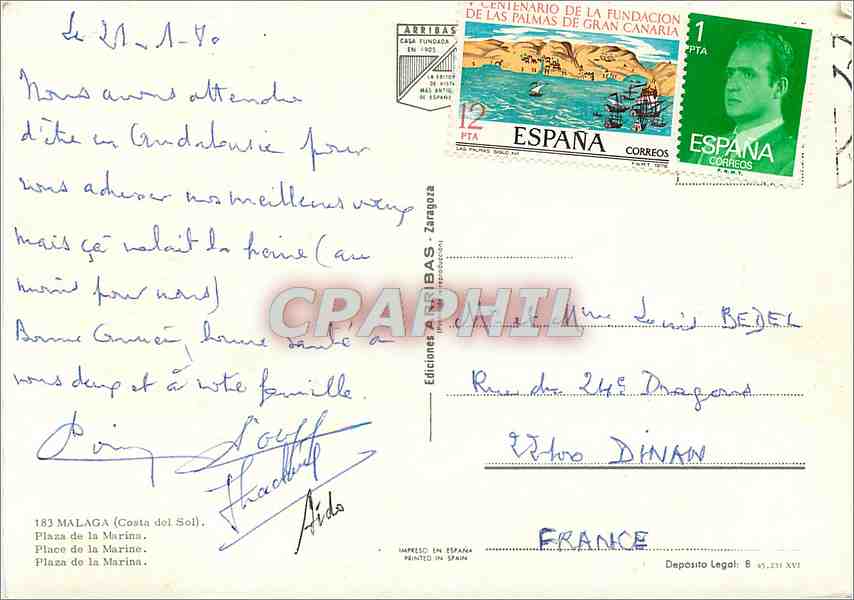 Le 21-1-80
Nous avons attendu
d'être en Andalousie pour
vous adresser nos meilleurs vœux
mais ça valait la peine (au
moins pour nous)
Bonne Année, bonne santé à
vous deux et à votre famille.
Aido
183 MALAGA (Costa del Sol).
Plaza de la Marina.
Place de la Marine.
Plaza de la Marina.
ARRIBAS
CASA FUNDADA
EN 1905
LA EDITOR
DE VISTA
MAS ANTIG
DE ESPAÑA
V CENTENARIO DE LA FUNDACION
DE LAS PALMAS DE GRAN CANARIA
12
PTA
ESPAÑA
CORREOS
LAS PALMAS SIGLO XVI
F.N.M.T. 1978
1
PTA
ESPAÑA
CORREOS
Ediciones ARRIBAS - Zaragoza
CPAPHIL
M. et Mme Louis BEDEL
Rue du 24e Dragons
22100 DINAN
FRANCE
IMPRESO EN ESPAÑA
PRINTED IN SPAIN
Depósito Legal: B 45.231 XVI